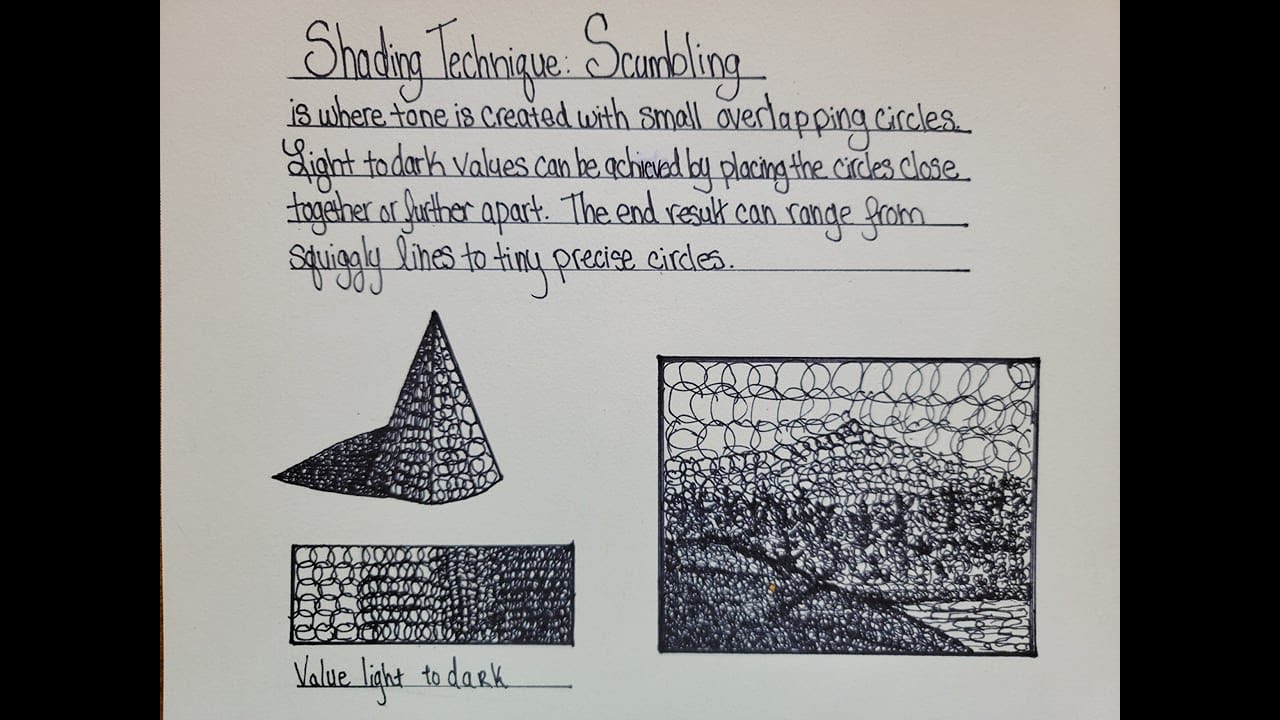 Shading Technique: Scumbling
is where tone is created with small overlapping circles.
Light to dark values can be achieved by placing the circles close
together or further apart. The end result can range from
squiggly lines to tiny precise circles.
Value light to dark